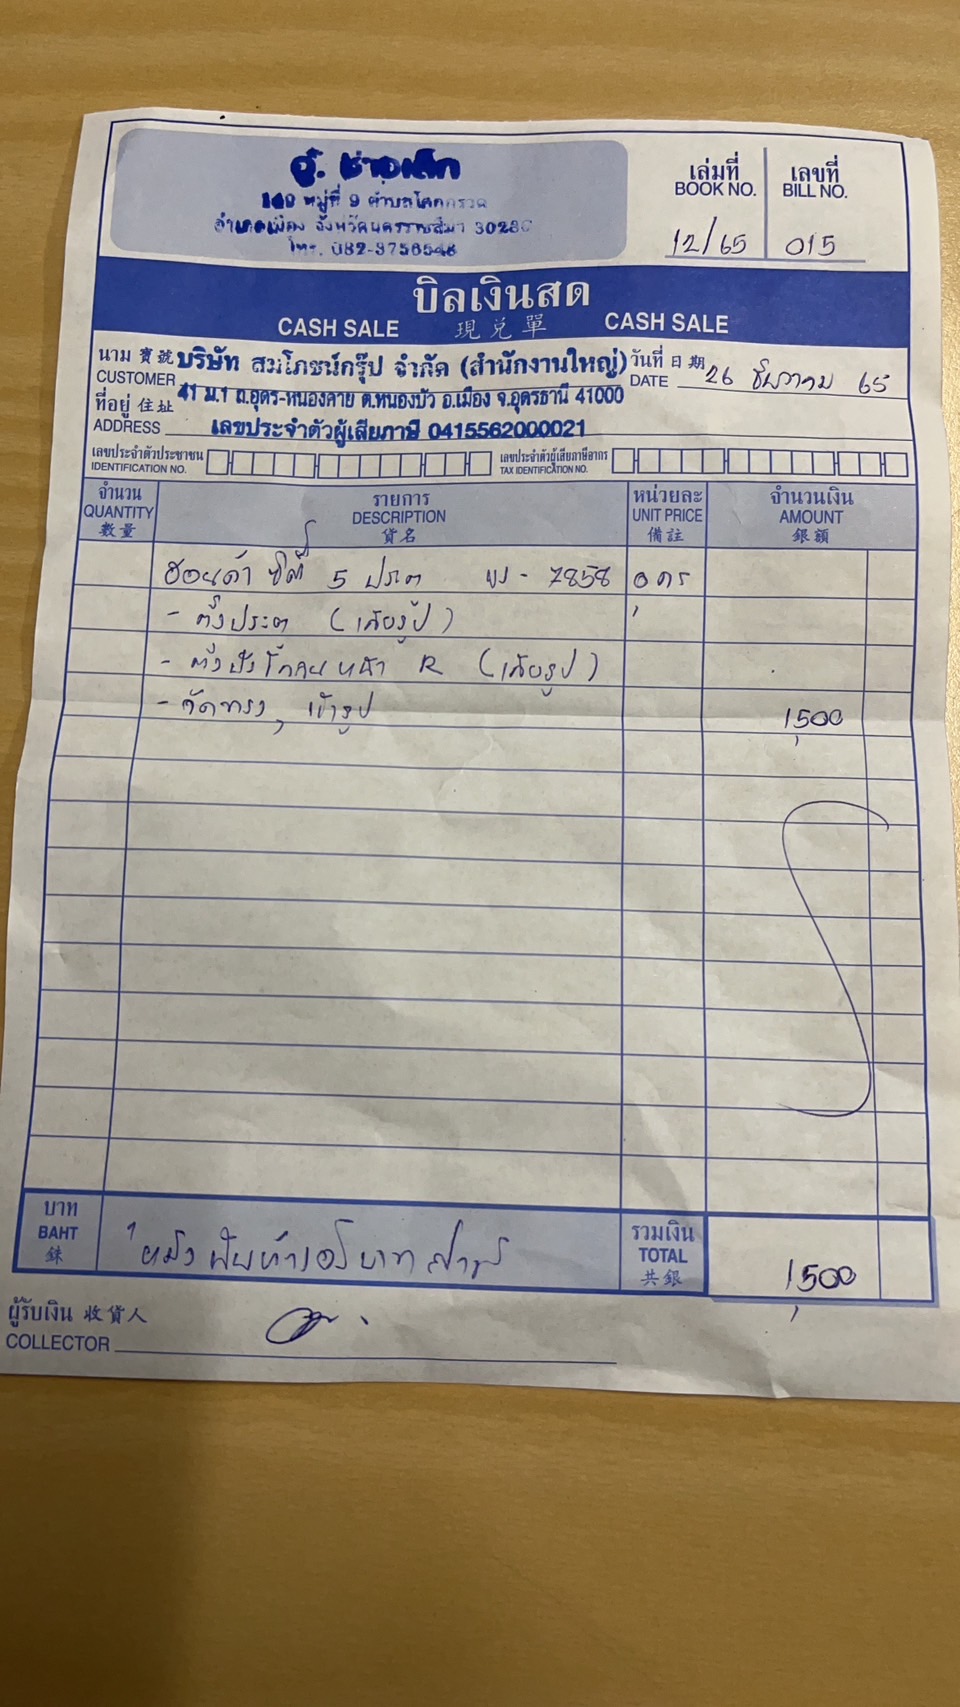 อู๋. ช่างเล็ก
149 หมู่ที่ 9 ตำบลโคกกรวด
อำเภอเมือง จังหวัดนครราชสีมา 30280
โทร. 082-3756548
เล่มที่ เลขที่
BOOK NO. BILL NO.
12/65 015
บิลเงินสด
CASH SALE 現兑單 CASH SALE
นาม 寶號 บริษัท สมโภชน์กรุ๊ป จำกัด (สำนักงานใหญ่) วันที่ 日期
CUSTOMER DATE 26 ธันวาคม 65
ที่อยู่ 住址 41 ม.1 ถ.อุดร-หนองคาย ต.หนองบัว อ.เมือง จ.อุดรธานี 41000
ADDRESS เลขประจำตัวผู้เสียภาษี 0415562000021
เลขประจำตัวประชาชน เลขประจำตัวผู้เสียภาษีอากร
IDENTIFICATION NO. TAX IDENTIFICATION NO.
จำนวน รายการ หน่วยละ จำนวนเงิน
QUANTITY DESCRIPTION UNIT PRICE AMOUNT
數量 貨名 備註 銀額
ฮอนด้า ซิตี้ 5 ประตู 7858 อดร
- ดึงประตู (เสียรูป)
- ดึงบังโคลนหน้า R (เสียรูป)
- จัดทรง, เข้ารูป 1,500
บาท รวมเงิน
BAHT หนึ่งพันห้าร้อยบาทถ้วน TOTAL 1,500
銖 共銀
ผู้รับเงิน 收貨人
COLLECTOR